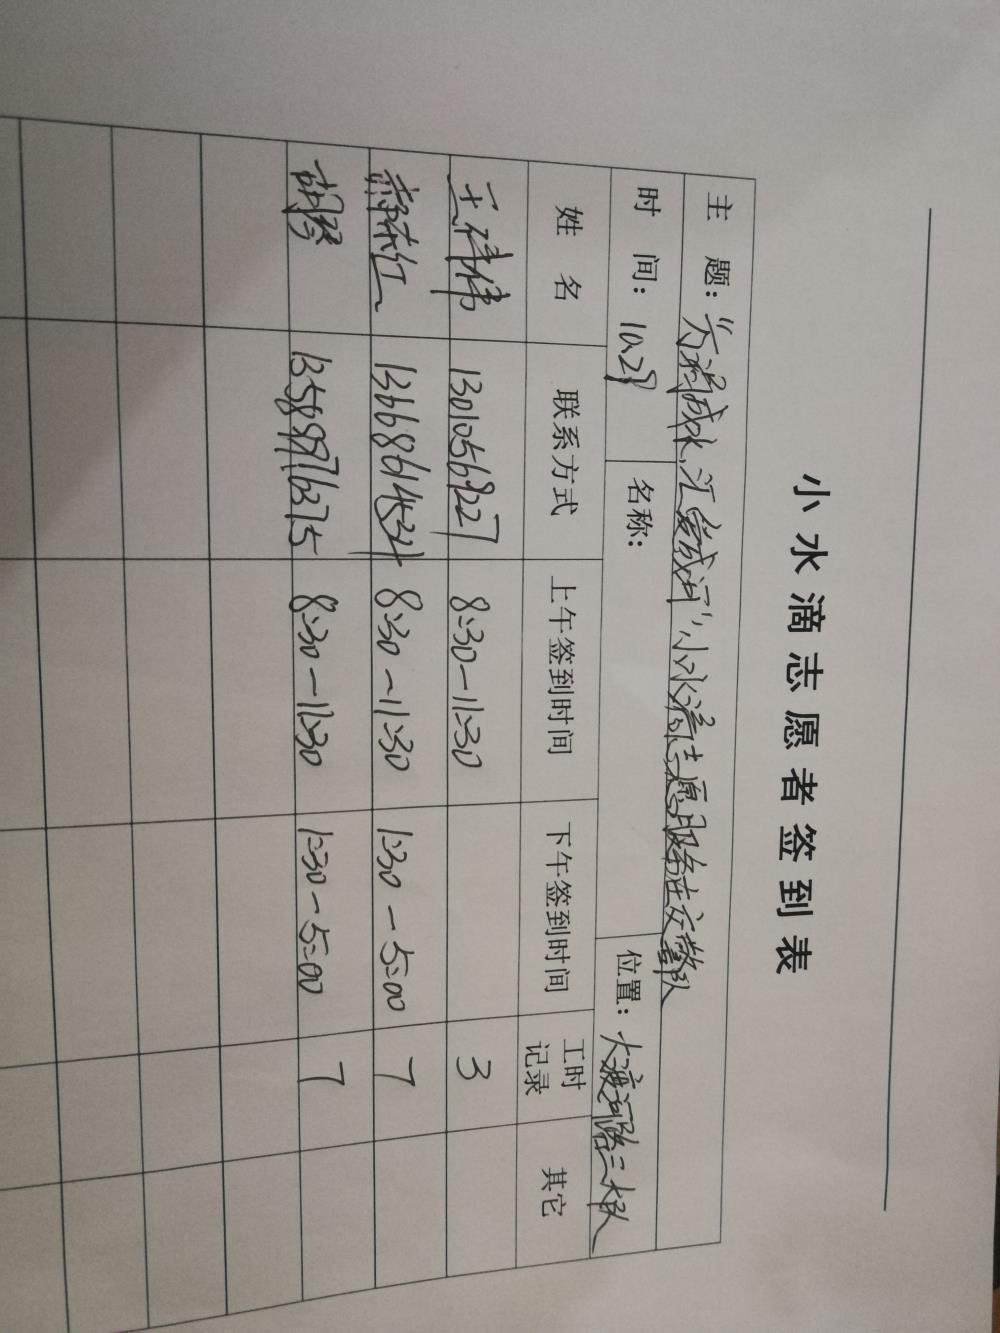 小水滴志愿者签到表
主 题：“六滴成水，汇爱成河”小水滴志愿服务在交警队
时 间：10.28 名称： 位置：大渡河路二大队
姓 名 联系方式 上午签到时间 下午签到时间 工时记录 其它
王伟伟 13010569227 8:30-11:30 3
红 13668614532 8:30-11:30 1:30-5:00 7
胡琴 13589976275 8:30-11:30 1:30-5:00 7